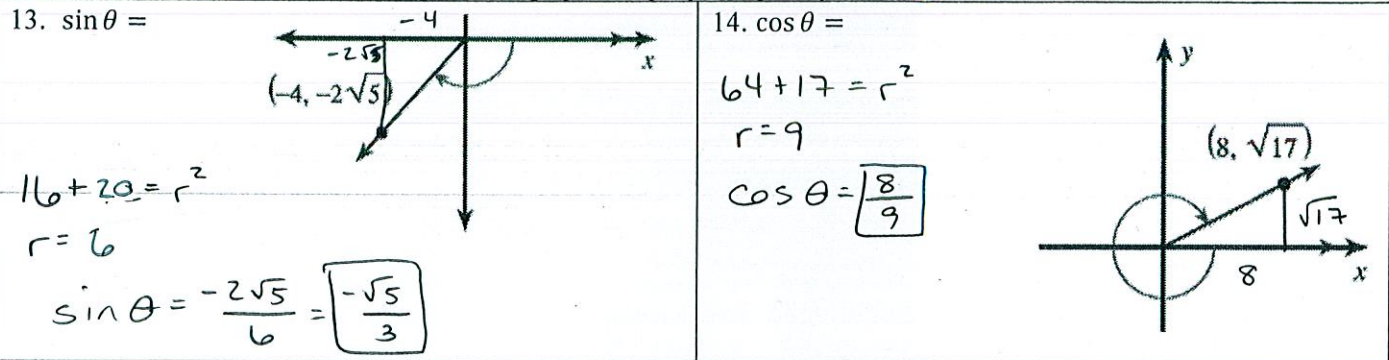 13. sin θ =
-4
-2√5
x
(-4, -2√5)
16 + 20 = r²
r = 6
sin θ = -2√5/6 = -√5/3
14. cos θ =
64 + 17 = r²
r = 9
cos θ = 8/9
y
(8, √17)
√17
8
x